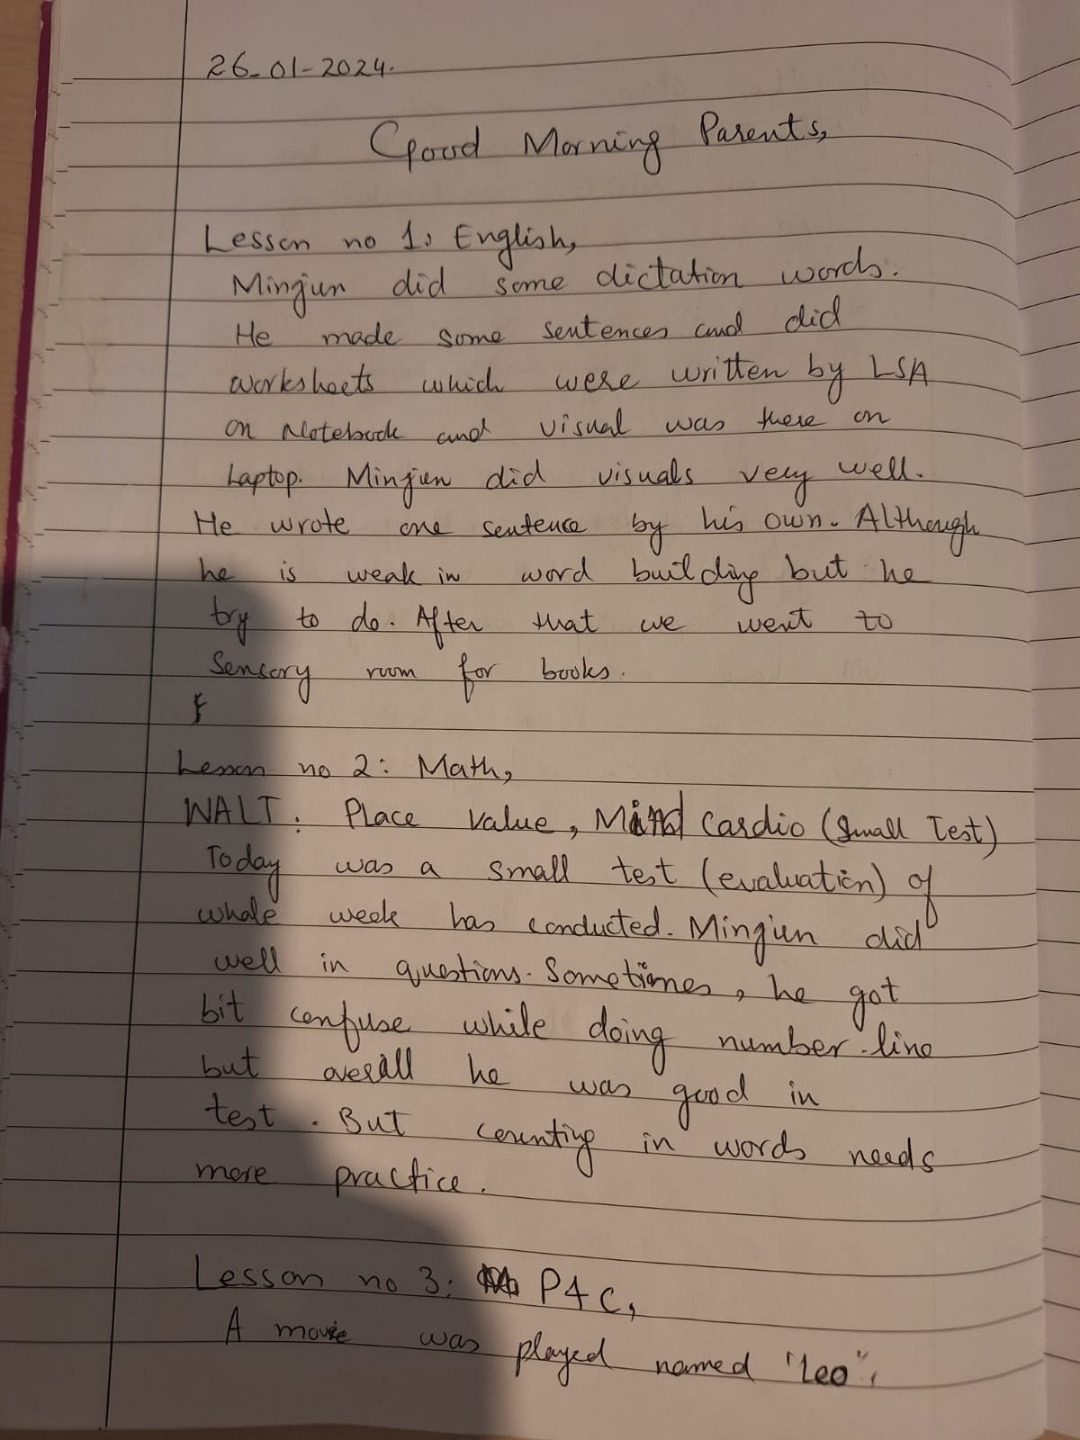 26-01-2024.
Good Morning Parents,
Lesson no 1: English,
Mingiun did some dictation words.
He made some sentences and did
worksheets which were written by LSA
on Notebook and visual was there on
Laptop. Mingiun did visuals very well.
He wrote one sentence by his own. Although
he is weak in word building but he
try to do. After that we went to
Sensory room for books.
Lesson no 2: Math,
WALT: Place Value, Mind Cardio (Small Test)
Today was a small test (evaluation) of
whole week has conducted. Mingiun did
well in questions. Sometimes, he got
bit confuse while doing number-line
but overall he was good in
test. But counting in words needs
more practice.
Lesson no 3: P4C,
A movie was played named "Leo",